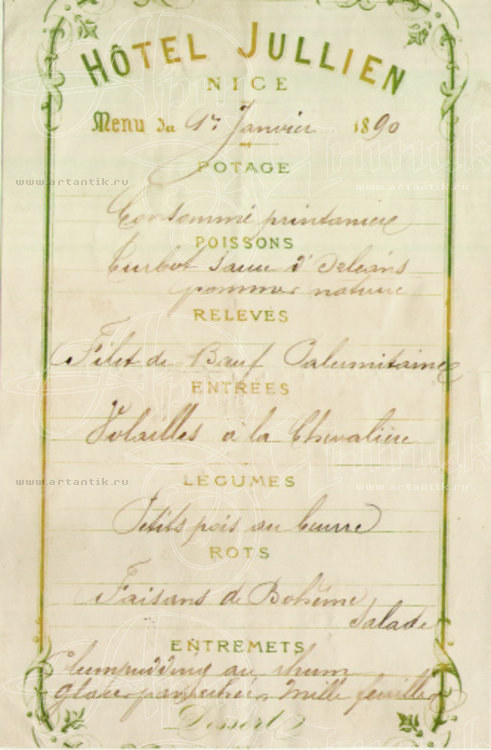 HÔTEL JULLIEN
NICE
Menu du 1er Janvier 1890
POTAGE
www.artantik.ru www.artantik.ru
Consommé printanière
POISSONS
Turbot sauce d'Orléans
pommes nature
RELEVÉS
Filet de Bœuf
ENTRÉES
Volailles à la Chevalière
LÉGUMES
www.artantik.ru www.artantik.ru
Petits pois au beurre
ROTS
Faisans de Bohême
Salade
ENTREMETS
Plumpudding au rhum
Glace mille feuilles
Dessert